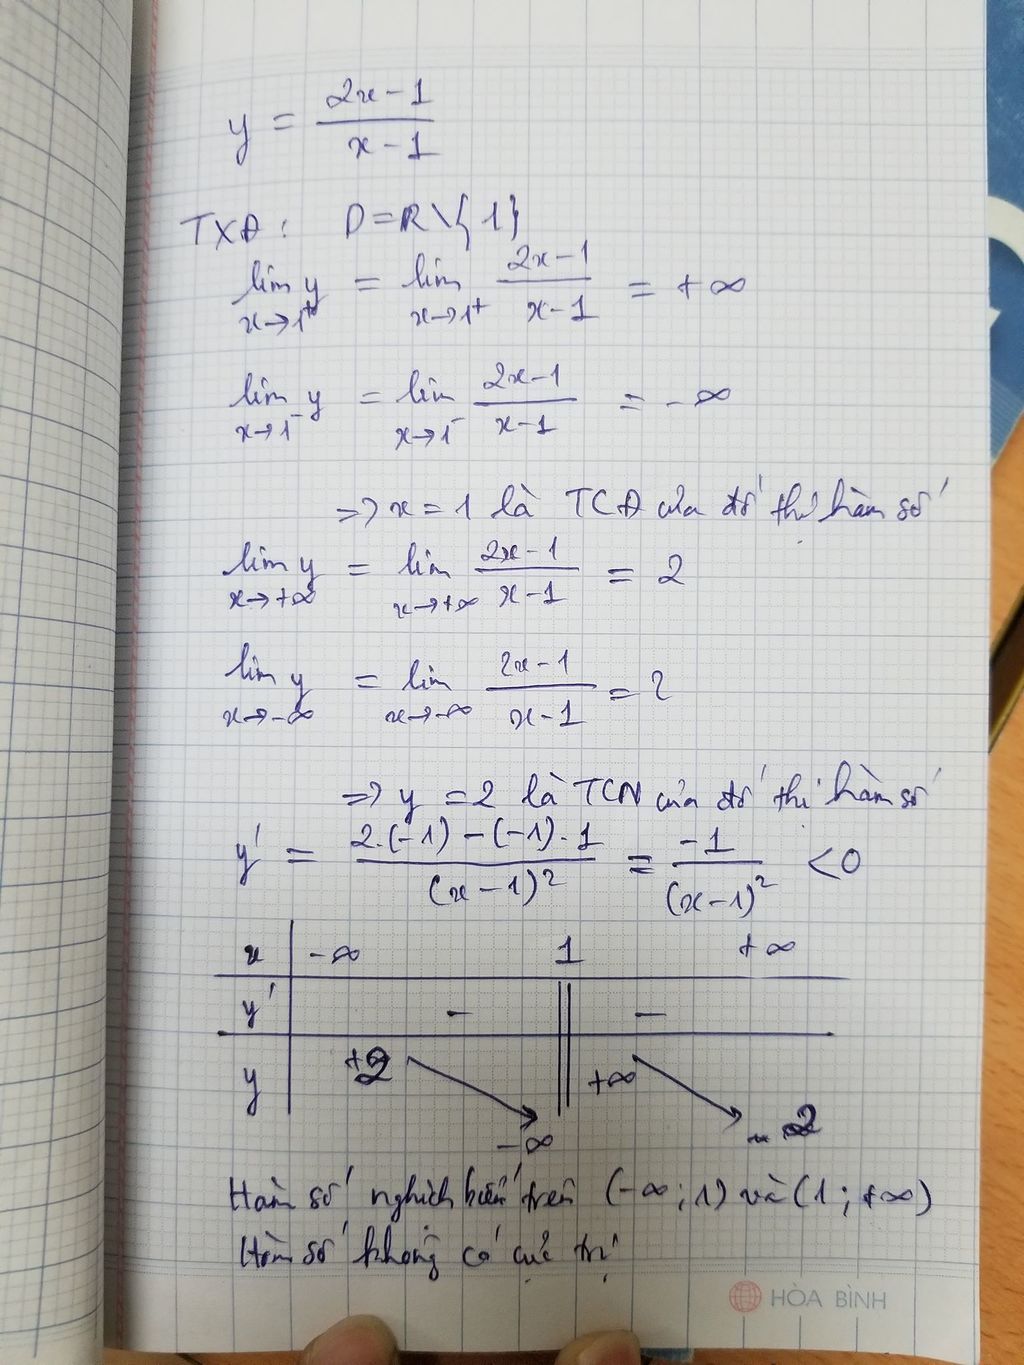 y = (2x-1)/(x-1)
TXĐ: D=R\{1}
lim_{x→1⁺} y = lim_{x→1⁺} (2x-1)/(x-1) = +∞
lim_{x→1⁻} y = lim_{x→1⁻} (2x-1)/(x-1) = -∞
=> x = 1 là TCĐ của đồ thị hàm số
lim_{x→+∞} y = lim_{x→+∞} (2x-1)/(x-1) = 2
lim_{x→-∞} y = lim_{x→-∞} (2x-1)/(x-1) = 2
=> y = 2 là TCN của đồ thị hàm số
y' = (2.(-1) - (-1).1)/(x-1)² = -1/(x-1)² < 0
x -∞ 1 +∞
y' - || -
y +2 -∞ || +∞ 2
Hàm số nghịch biến trên (-∞;1) và (1;+∞)
Hàm số không có cực trị
HÒA BÌNH